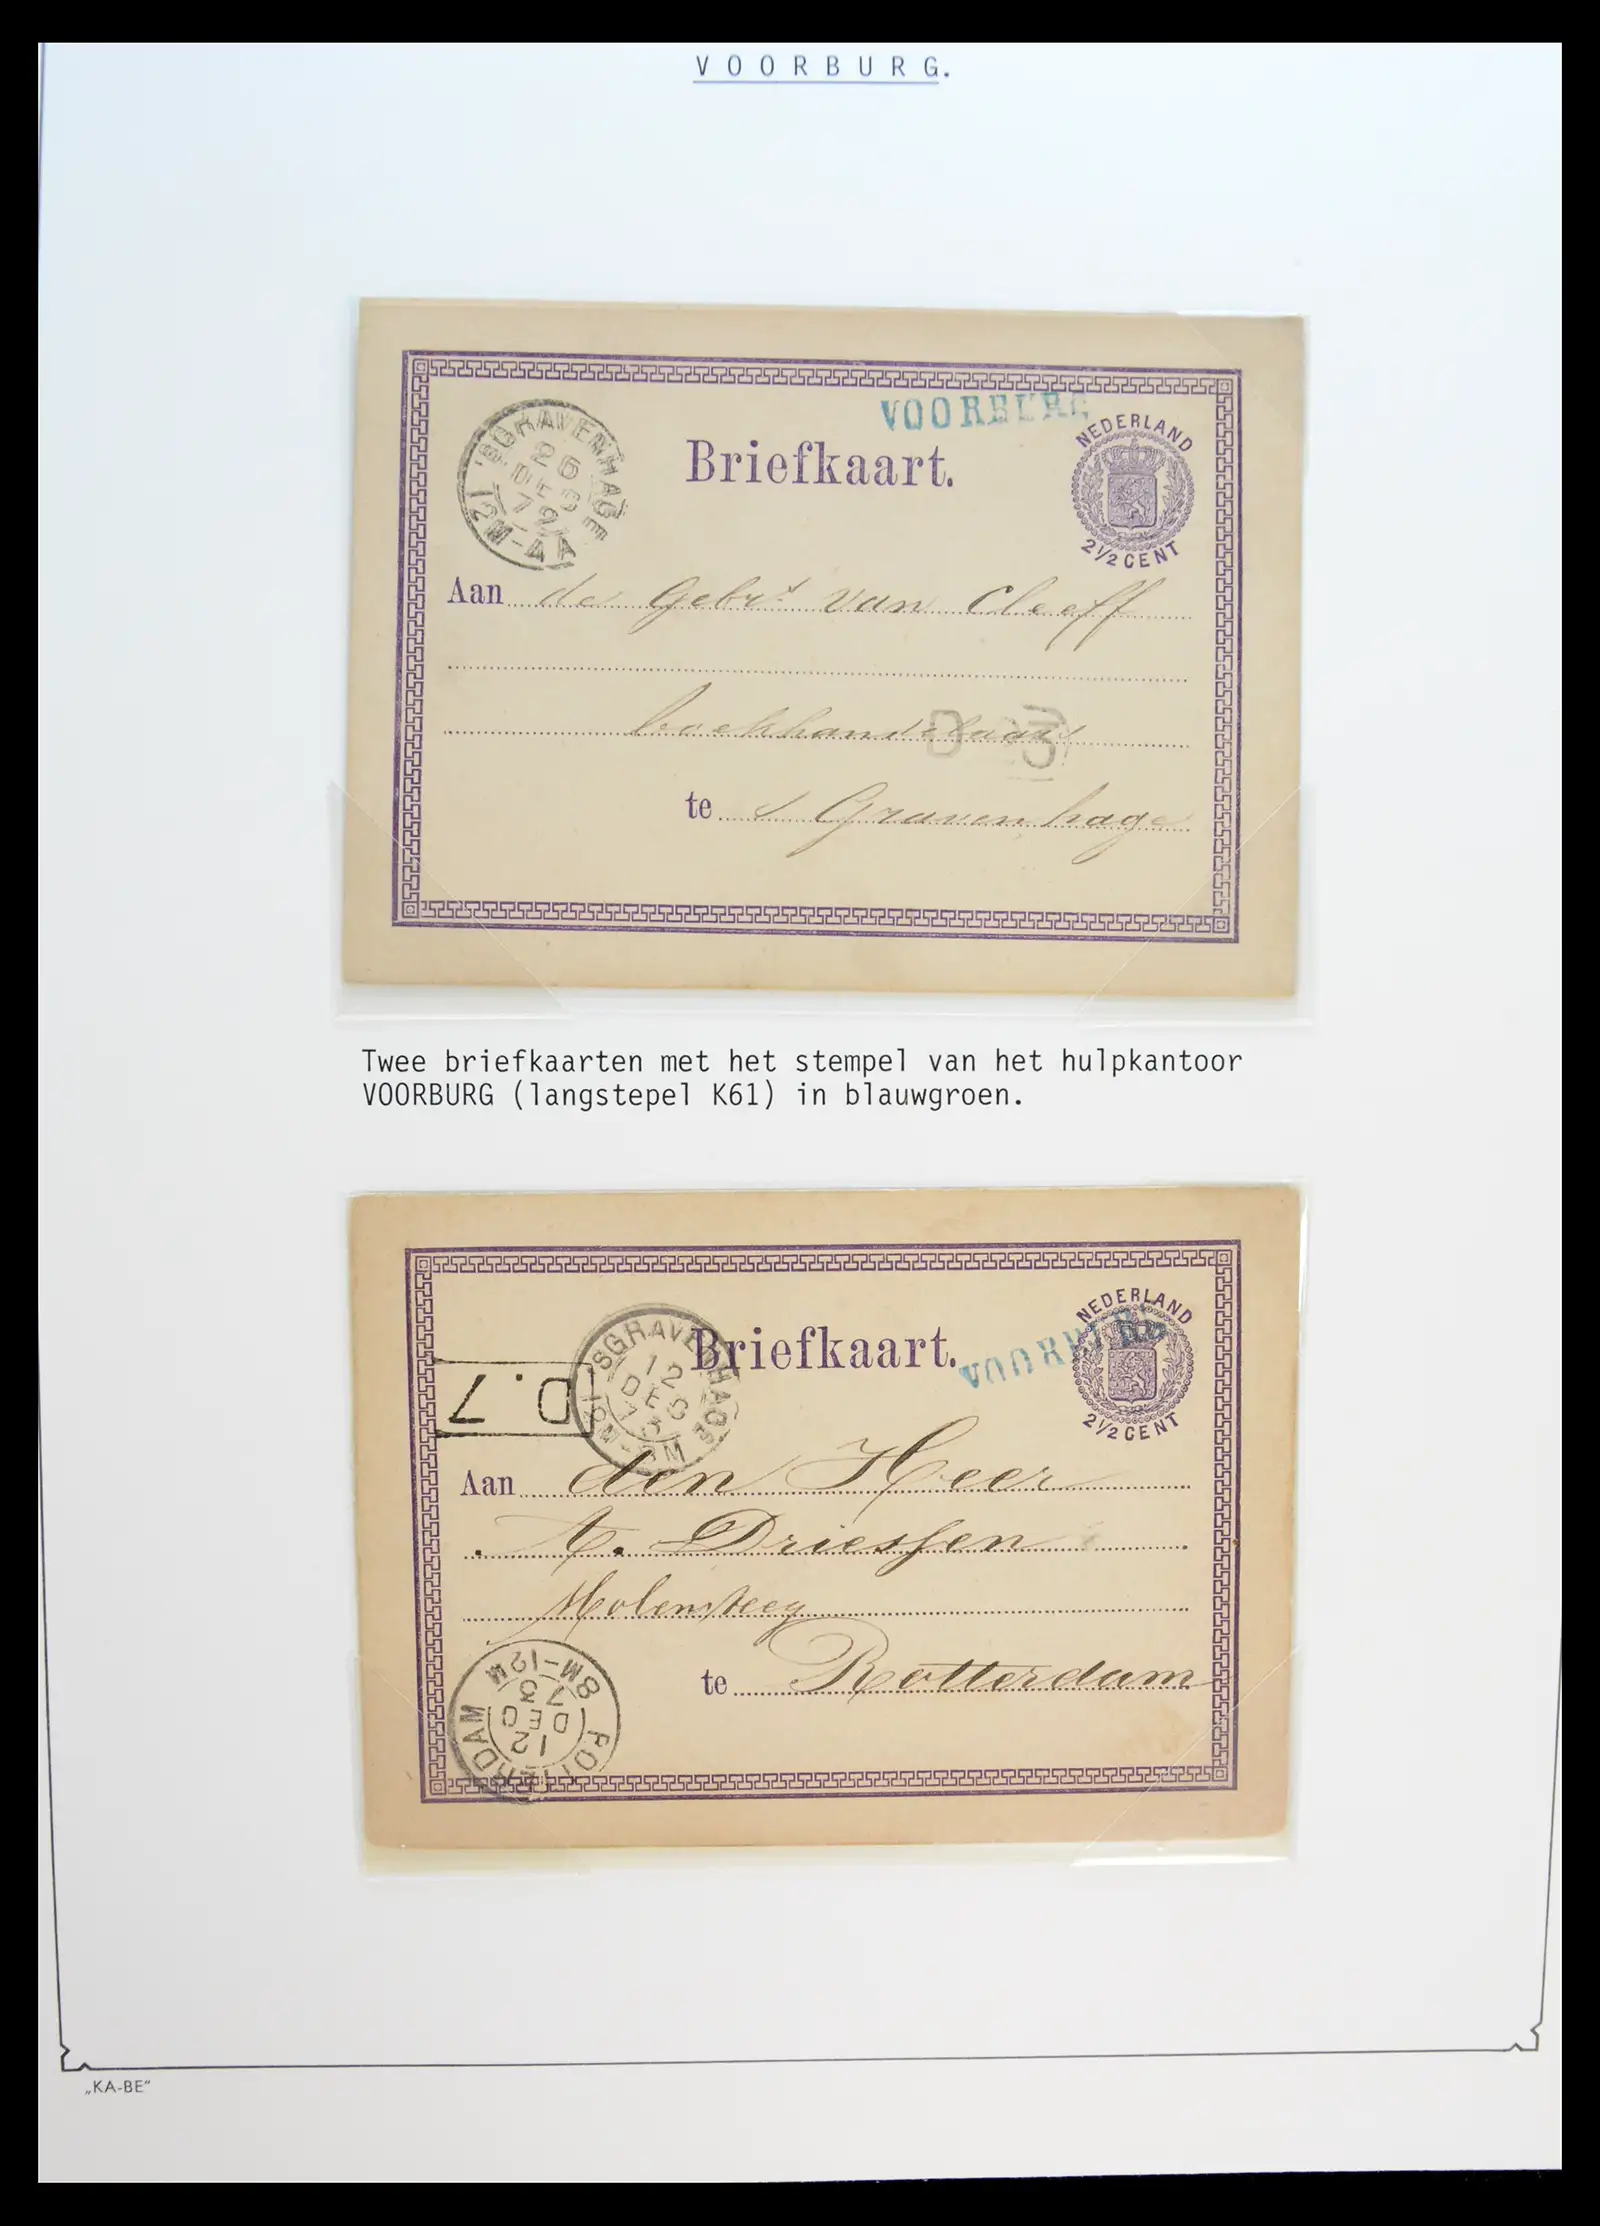 V O O R B U R G.
VOORBURG
'SGRAVENHAGE
26
DEC
12M-
Briefkaart.
NEDERLAND
2½ CENT
Aan de Gebrs van Cleeff
boekhandelaars
D 3
te s Gravenhage
Twee briefkaarten met het stempel van het hulpkantoor
VOORBURG (langstepel K61) in blauwgroen.
VOORBURG
'SGRAVENHAGE
12
DEC
73
Briefkaart.
NEDERLAND
2½ CENT
D.7
Aan den Heer
A. Driessen
Molensteeg
te Rotterdam
ROTTERDAM
12
DEC
73
8M-12M
„KA-BE"